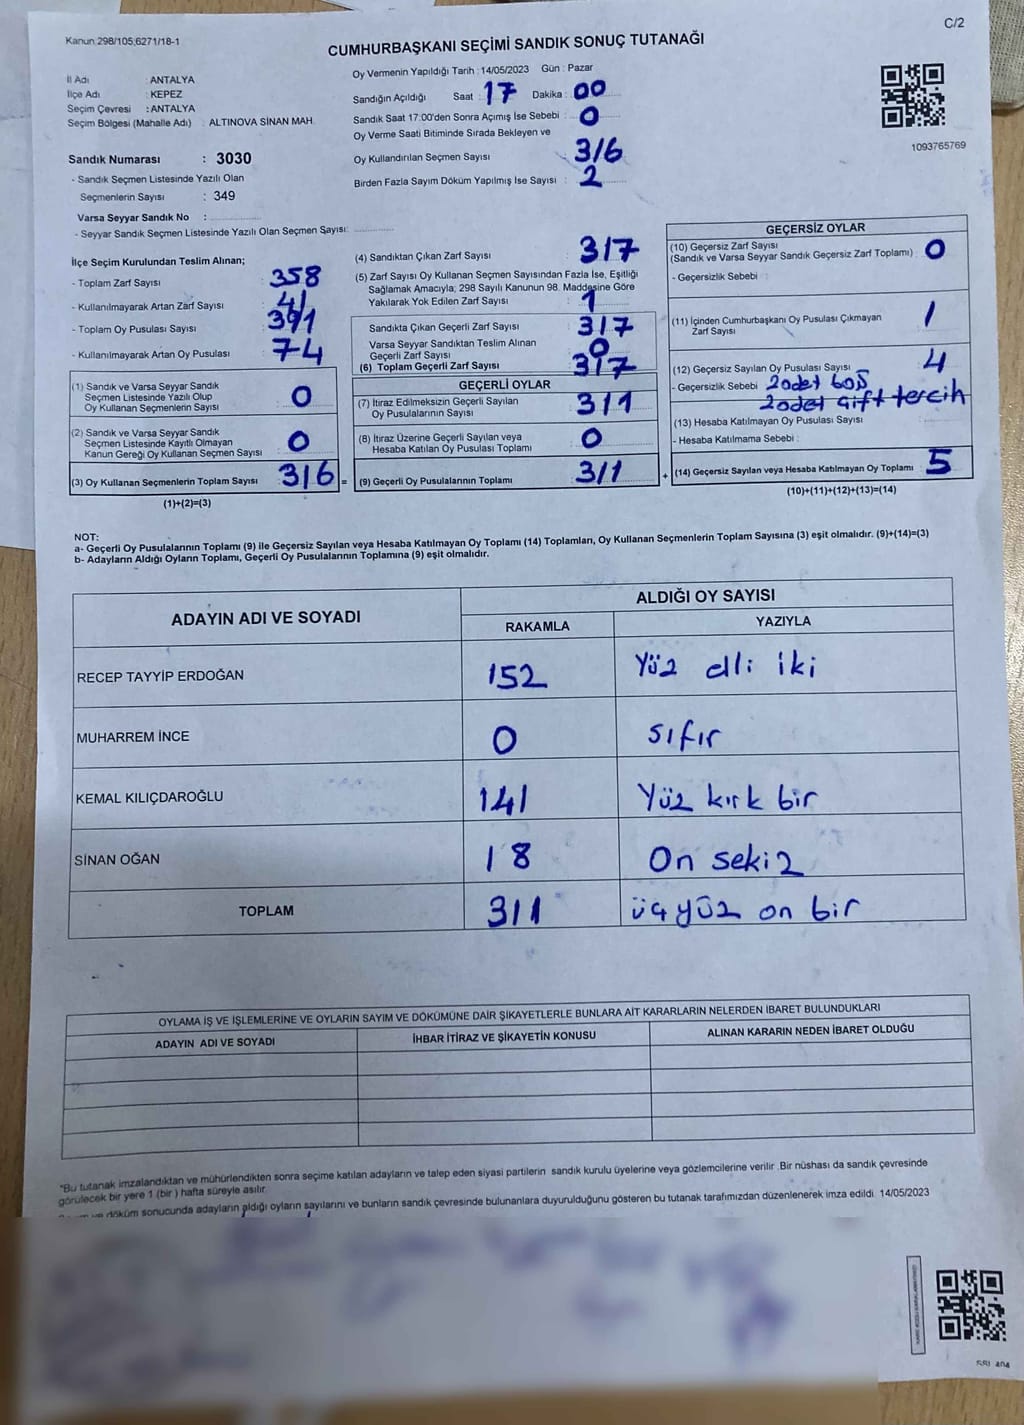 Kanun 298/105,6271/18-1
C/2
CUMHURBAŞKANI SEÇİMİ SANDIK SONUÇ TUTANAĞI
İl Adı : ANTALYA
İlçe Adı : KEPEZ
Seçim Çevresi : ANTALYA
Seçim Bölgesi (Mahalle Adı) : ALTINOVA SİNAN MAH.
Sandık Numarası : 3030
- Sandık Seçmen Listesinde Yazılı Olan
Seçmenlerin Sayısı : 349
Varsa Seyyar Sandık No :
- Seyyar Sandık Seçmen Listesinde Yazılı Olan Seçmen Sayısı:
Oy Vermenin Yapıldığı Tarih : 14/05/2023 Gün : Pazar
Sandığın Açıldığı Saat : 17 Dakika : 00
Sandık Saat 17:00'den Sonra Açımış İse Sebebi : 0
Oy Verme Saati Bitiminde Sırada Bekleyen ve
Oy Kullandırılan Seçmen Sayısı : 316
Birden Fazla Sayım Döküm Yapılmış İse Sayısı : 2
1093765769
İlçe Seçim Kurulundan Teslim Alınan;
- Toplam Zarf Sayısı : 358
- Kullanılmayarak Artan Zarf Sayısı : 41
- Toplam Oy Pusulası Sayısı : 391
- Kullanılmayarak Artan Oy Pusulası : 74
(1) Sandık ve Varsa Seyyar Sandık
Seçmen Listesinde Yazılı Olup
Oy Kullanan Seçmenlerin Sayısı : 0
(2) Sandık ve Varsa Seyyar Sandık
Seçmen Listesinde Kayıtlı Olmayan
Kanun Gereği Oy Kullanan Seçmen Sayısı : 0
(3) Oy Kullanan Seçmenlerin Toplam Sayısı : 316 =
(1)+(2)=(3)
(4) Sandıktan Çıkan Zarf Sayısı : 317
(5) Zarf Sayısı Oy Kullanan Seçmen Sayısından Fazla İse, Eşitliği
Sağlamak Amacıyla; 298 Sayılı Kanunun 98. Maddesine Göre
Yakılarak Yok Edilen Zarf Sayısı : 1
Sandıkta Çıkan Geçerli Zarf Sayısı : 317
Varsa Seyyar Sandıktan Teslim Alınan
Geçerli Zarf Sayısı : 0
(6) Toplam Geçerli Zarf Sayısı : 317
GEÇERLİ OYLAR
(7) İtiraz Edilmeksizin Geçerli Sayılan
Oy Pusulalarının Sayısı : 311
(8) İtiraz Üzerine Geçerli Sayılan veya
Hesaba Katılan Oy Pusulası Toplamı : 0
(9) Geçerli Oy Pusulalarının Toplamı : 311 +
GEÇERSİZ OYLAR
(10) Geçersiz Zarf Sayısı
(Sandık ve Varsa Seyyar Sandık Geçersiz Zarf Toplamı) : 0
- Geçersizlik Sebebi :
(11) İçinden Cumhurbaşkanı Oy Pusulası Çıkmayan
Zarf Sayısı : 1
(12) Geçersiz Sayılan Oy Pusulası Sayısı : 4
- Geçersizlik Sebebi : 2 adet boş
2 adet çift tercih
(13) Hesaba Katılmayan Oy Pusulası Sayısı :
- Hesaba Katılmama Sebebi :
(14) Geçersiz Sayılan veya Hesaba Katılmayan Oy Toplamı : 5
(10)+(11)+(12)+(13)=(14)
NOT:
a- Geçerli Oy Pusulalarının Toplamı (9) ile Geçersiz Sayılan veya Hesaba Katılmayan Oy Toplamı (14) Toplamları, Oy Kullanan Seçmenlerin Toplam Sayısına (3) eşit olmalıdır. (9)+(14)=(3)
b- Adayların Aldığı Oyların Toplamı, Geçerli Oy Pusulalarının Toplamına (9) eşit olmalıdır.
ADAYIN ADI VE SOYADI
ALDIĞI OY SAYISI
RAKAMLA YAZIYLA
RECEP TAYYİP ERDOĞAN 152 Yüz elli iki
MUHARREM İNCE 0 sıfır
KEMAL KILIÇDAROĞLU 141 Yüz kırk bir
SİNAN OĞAN 18 On sekiz
TOPLAM 311 üçyüz on bir
OYLAMA İŞ VE İŞLEMLERİNE VE OYLARIN SAYIM VE DÖKÜMÜNE DAİR ŞİKAYETLERLE BUNLARA AİT KARARLARIN NELERDEN İBARET BULUNDUKLARI
ADAYIN ADI VE SOYADI İHBAR İTİRAZ VE ŞİKAYETİN KONUSU ALINAN KARARIN NEDEN İBARET OLDUĞU
*Bu tutanak imzalandıktan ve mühürlendikten sonra seçime katılan adayların ve talep eden siyasi partilerin sandık kurulu üyelerine veya gözlemcilerine verilir .Bir nüshası da sandık çevresinde
görülecek bir yere 1 (bir ) hafta süreyle asılır.
ve döküm sonucunda adayların aldığı oyların sayılarını ve bunların sandık çevresinde bulunanlara duyurulduğunu gösteren bu tutanak tarafımızdan düzenlenerek imza edildi. 14/05/2023